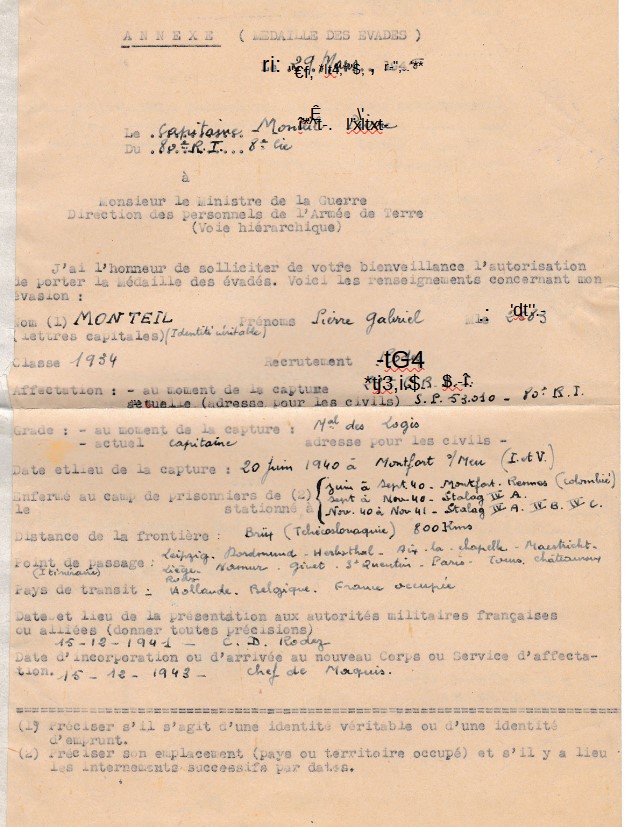 ANNEXE ( MEDAILLE DES EVADES )
29 Mars
Le Capitaine Monteil
Du 80e R.I. 8e Cie
à
Monsieur le Ministre de la Guerre
Direction des personnels de l'Armée de Terre
(Voie hiérarchique)
J'ai l'honneur de solliciter de votre bienveillance l'autorisation
de porter la médaille des évadés. Voici les renseignements concernant mon
évasion :
Nom (1) MONTEIL Prénoms Pierre Gabriel
(lettres capitales) (Identité véritable)
Classe 1934 Recrutement
Affectation : - au moment de la capture
actuelle (adresse pour les civils) S.P. 53.010 - 80e R.I.
Grade : - au moment de la capture : Mal des Logis
- actuel capitaine adresse pour les civils -
Date et lieu de la capture : 20 Juin 1940 à Montfort s/Meu (I. et V.)
Enfermé au camp de prisonniers de (2) Juin à Sept 40 - Montfort - Rennes (Colombier)
Sept à Nov. 40 - Stalag IV A.
le stationné à Nov. 40 à Nov 41 - Stalag IV A. IV B. IV C.
Distance de la frontière : Brüx (Tchécoslovaquie) 800 Kms
Point de passage : Leipzig - Dordmund - Herbsthal - Aix-la-chapelle - Maestricht -
(Itinéraire) Liège - Namur - Givet - St Quentin - Paris - Tours, châteauroux
Rodez
Pays de transit : Hollande. Belgique. France occupée
Date et lieu de la présentation aux autorités militaires françaises
ou alliées (donner toutes précisions)
15-12-1941 - C. D. Rodez
Date d'incorporation ou d'arrivée au nouveau Corps ou Service d'affecta-
tion. 15-12-1943 - Chef de Maquis.
(1) Préciser s'il s'agit d'une identité véritable ou d'une identité
d'emprunt.
(2) Préciser son emplacement (pays ou territoire occupé) et s'il y a lieu
les internements successifs par dates.